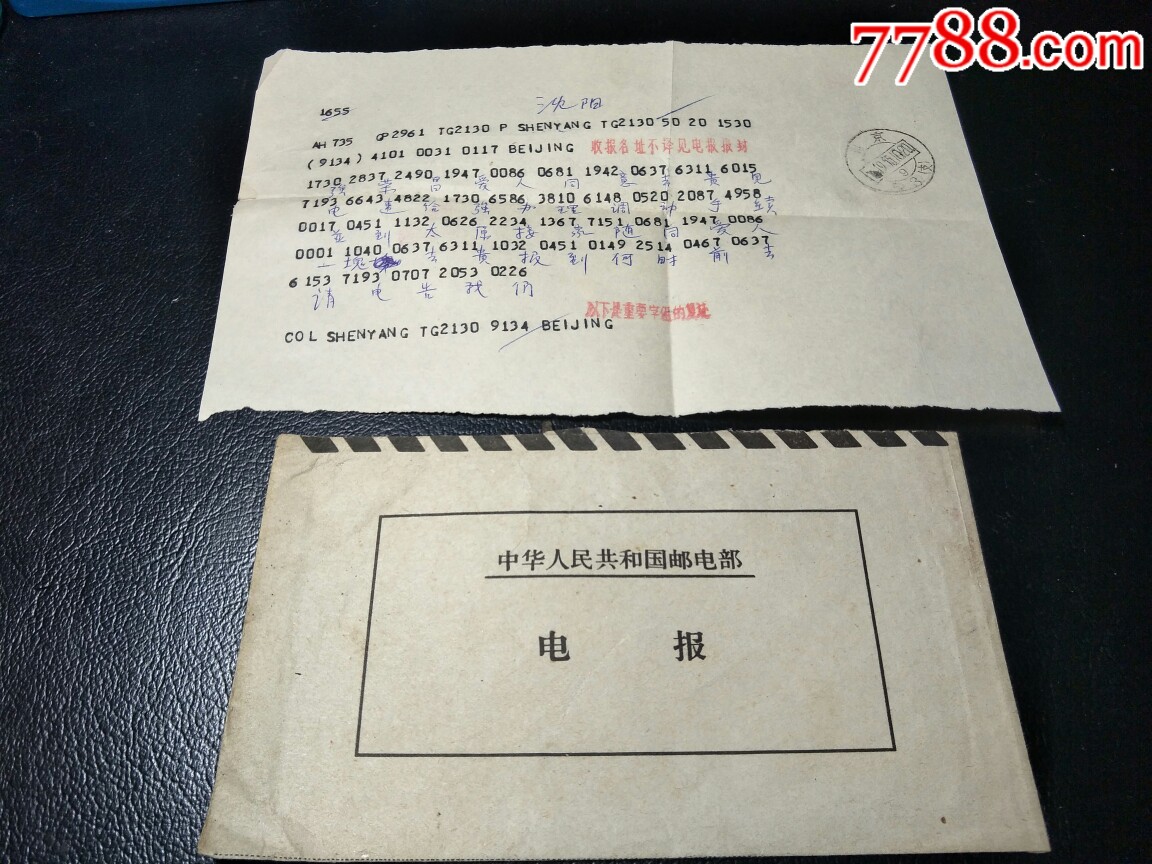 7788.com
沈阳
1655
AH 735 GP2961 TG2130 P SHENYANG TG2130 50 20 1530
(9134) 4101 0031 0117 BEIJING 收报名址不详见电报报封
1730 2837 2490 1947 0086 0681 1942 0637 6311 6015
强 荣 昌 爱 人 同 意 去 贵 见
7193 6643 4822 1730 6586 3810 6148 0520 2087 4958
电 速 给 强 办 理 调 动 手 续
0017 0451 1132 0626 2234 1367 7151 0681 1947 0086
并 到 太 原 接 家 随 同 爱 人
0001 1040 0637 6311 1032 0451 0149 2514 0467 0637
一 块 去 贵 报 到 何 时 前 去
6153 7193 0707 2053 0226
请 电 告 我 们
以下是重要字组的复述
COL SHENYANG TG2130 9134 BEIJING
中华人民共和国邮电部
电 报